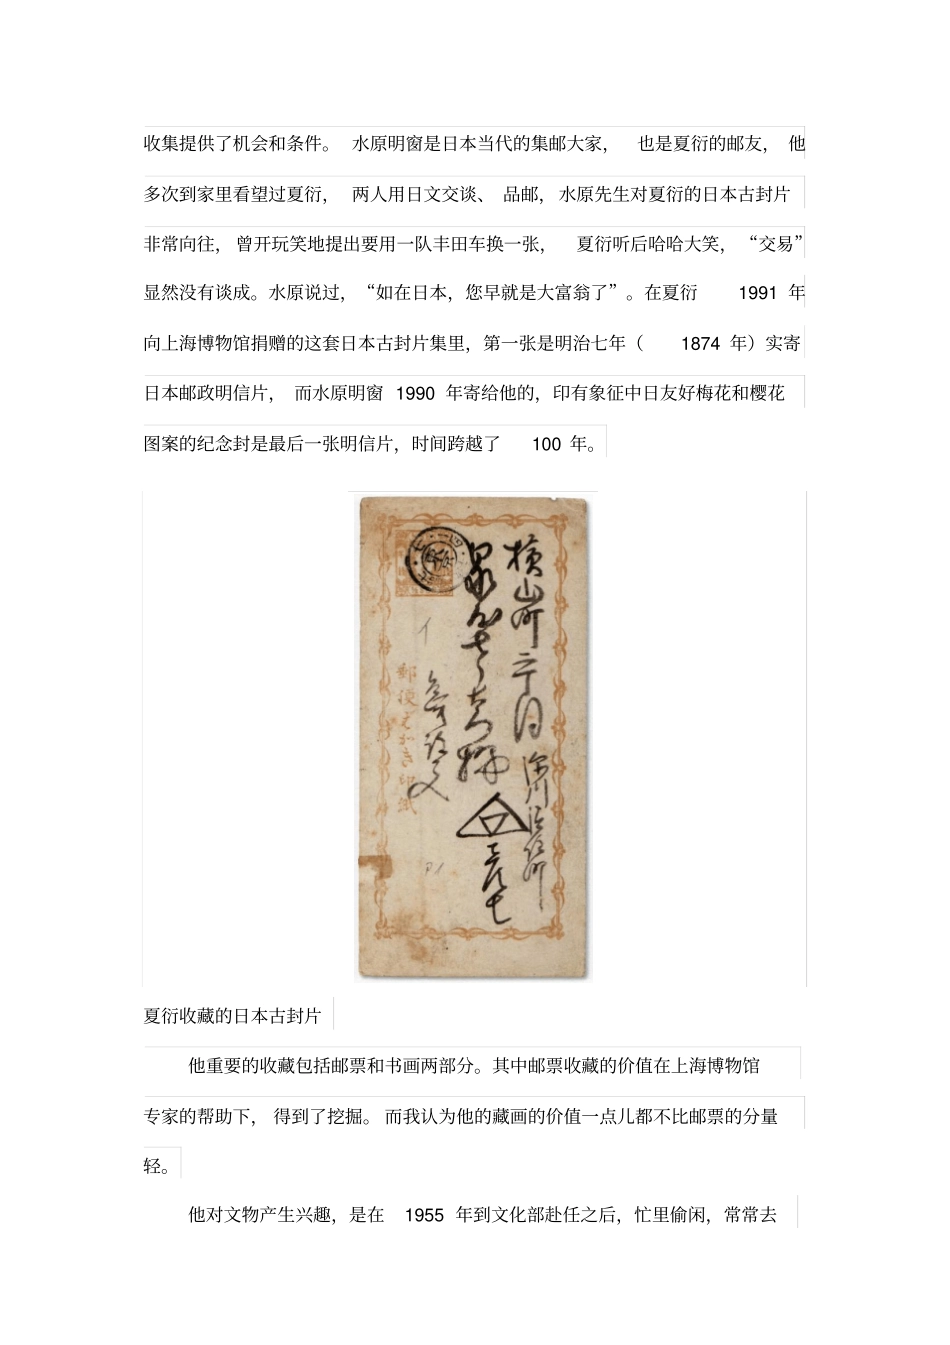 收集提供了机会和条件。 水原明窗是日本当代的集邮大家， 也是夏衍的邮友， 他
多次到家里看望过夏衍， 两人用日文交谈、 品邮，水原先生对夏衍的日本古封片
非常向往，曾开玩笑地提出要用一队丰田车换一张， 夏衍听后哈哈大笑，“交易”
显然没有谈成。水原说过，“如在日本，您早就是大富翁了”。在夏衍 1991 年
向上海博物馆捐赠的这套日本古封片集里，第一张是明治七年（ 1874 年）实寄
日本邮政明信片， 而水原明窗 1990 年寄给他的，印有象征中日友好梅花和樱花
图案的纪念封是最后一张明信片，时间跨越了 100 年。
横山町二丁目
郵便はがき印紙
夏衍收藏的日本古封片
他重要的收藏包括邮票和书画两部分。其中邮票收藏的价值在上海博物馆
专家的帮助下， 得到了挖掘。 而我认为他的藏画的价值一点儿都不比邮票的分量
轻。
他对文物产生兴趣，是在 1955 年到文化部赴任之后，忙里偷闲，常常去